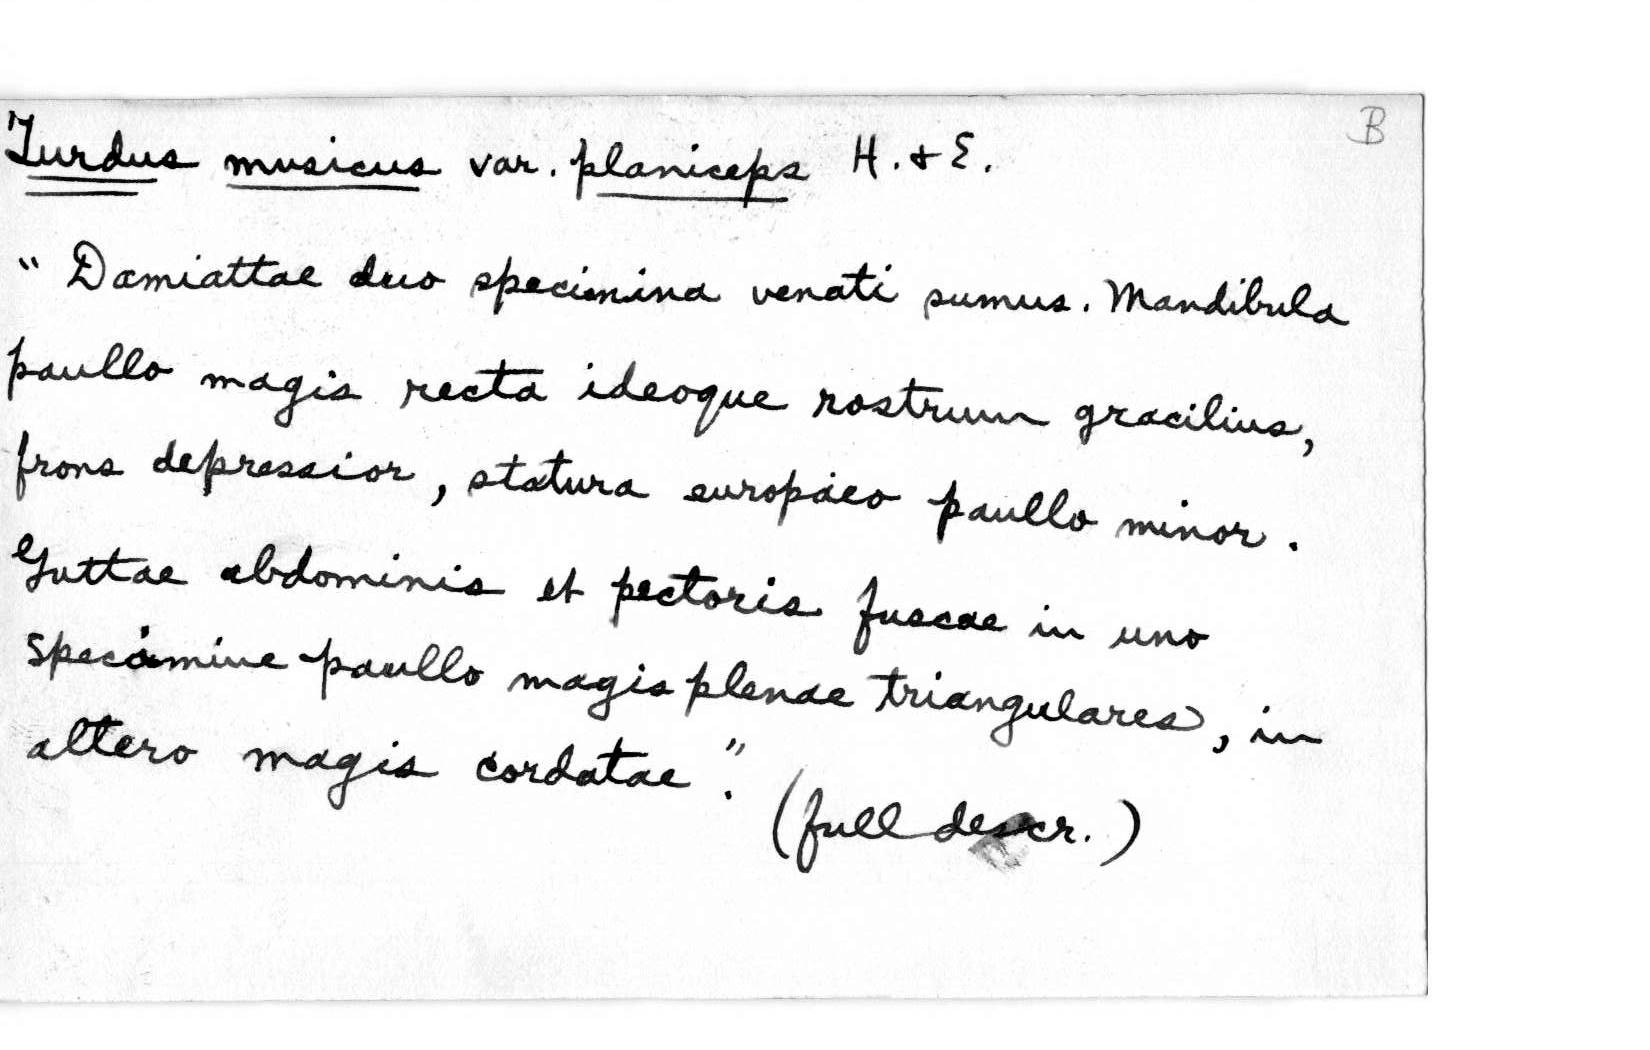 B
Turdus musicus var. planiceps H. & E.
" Damiattae duo specimina venati sumus. Mandibula
paullo magis recta ideoque rostrum gracilius,
frons depressior, statura europaeo paullo minor.
Guttae abdominis et pectoris fuscae in uno
specimine paullo magis plenae triangulares, in
altero magis cordatae."
(full descr.)